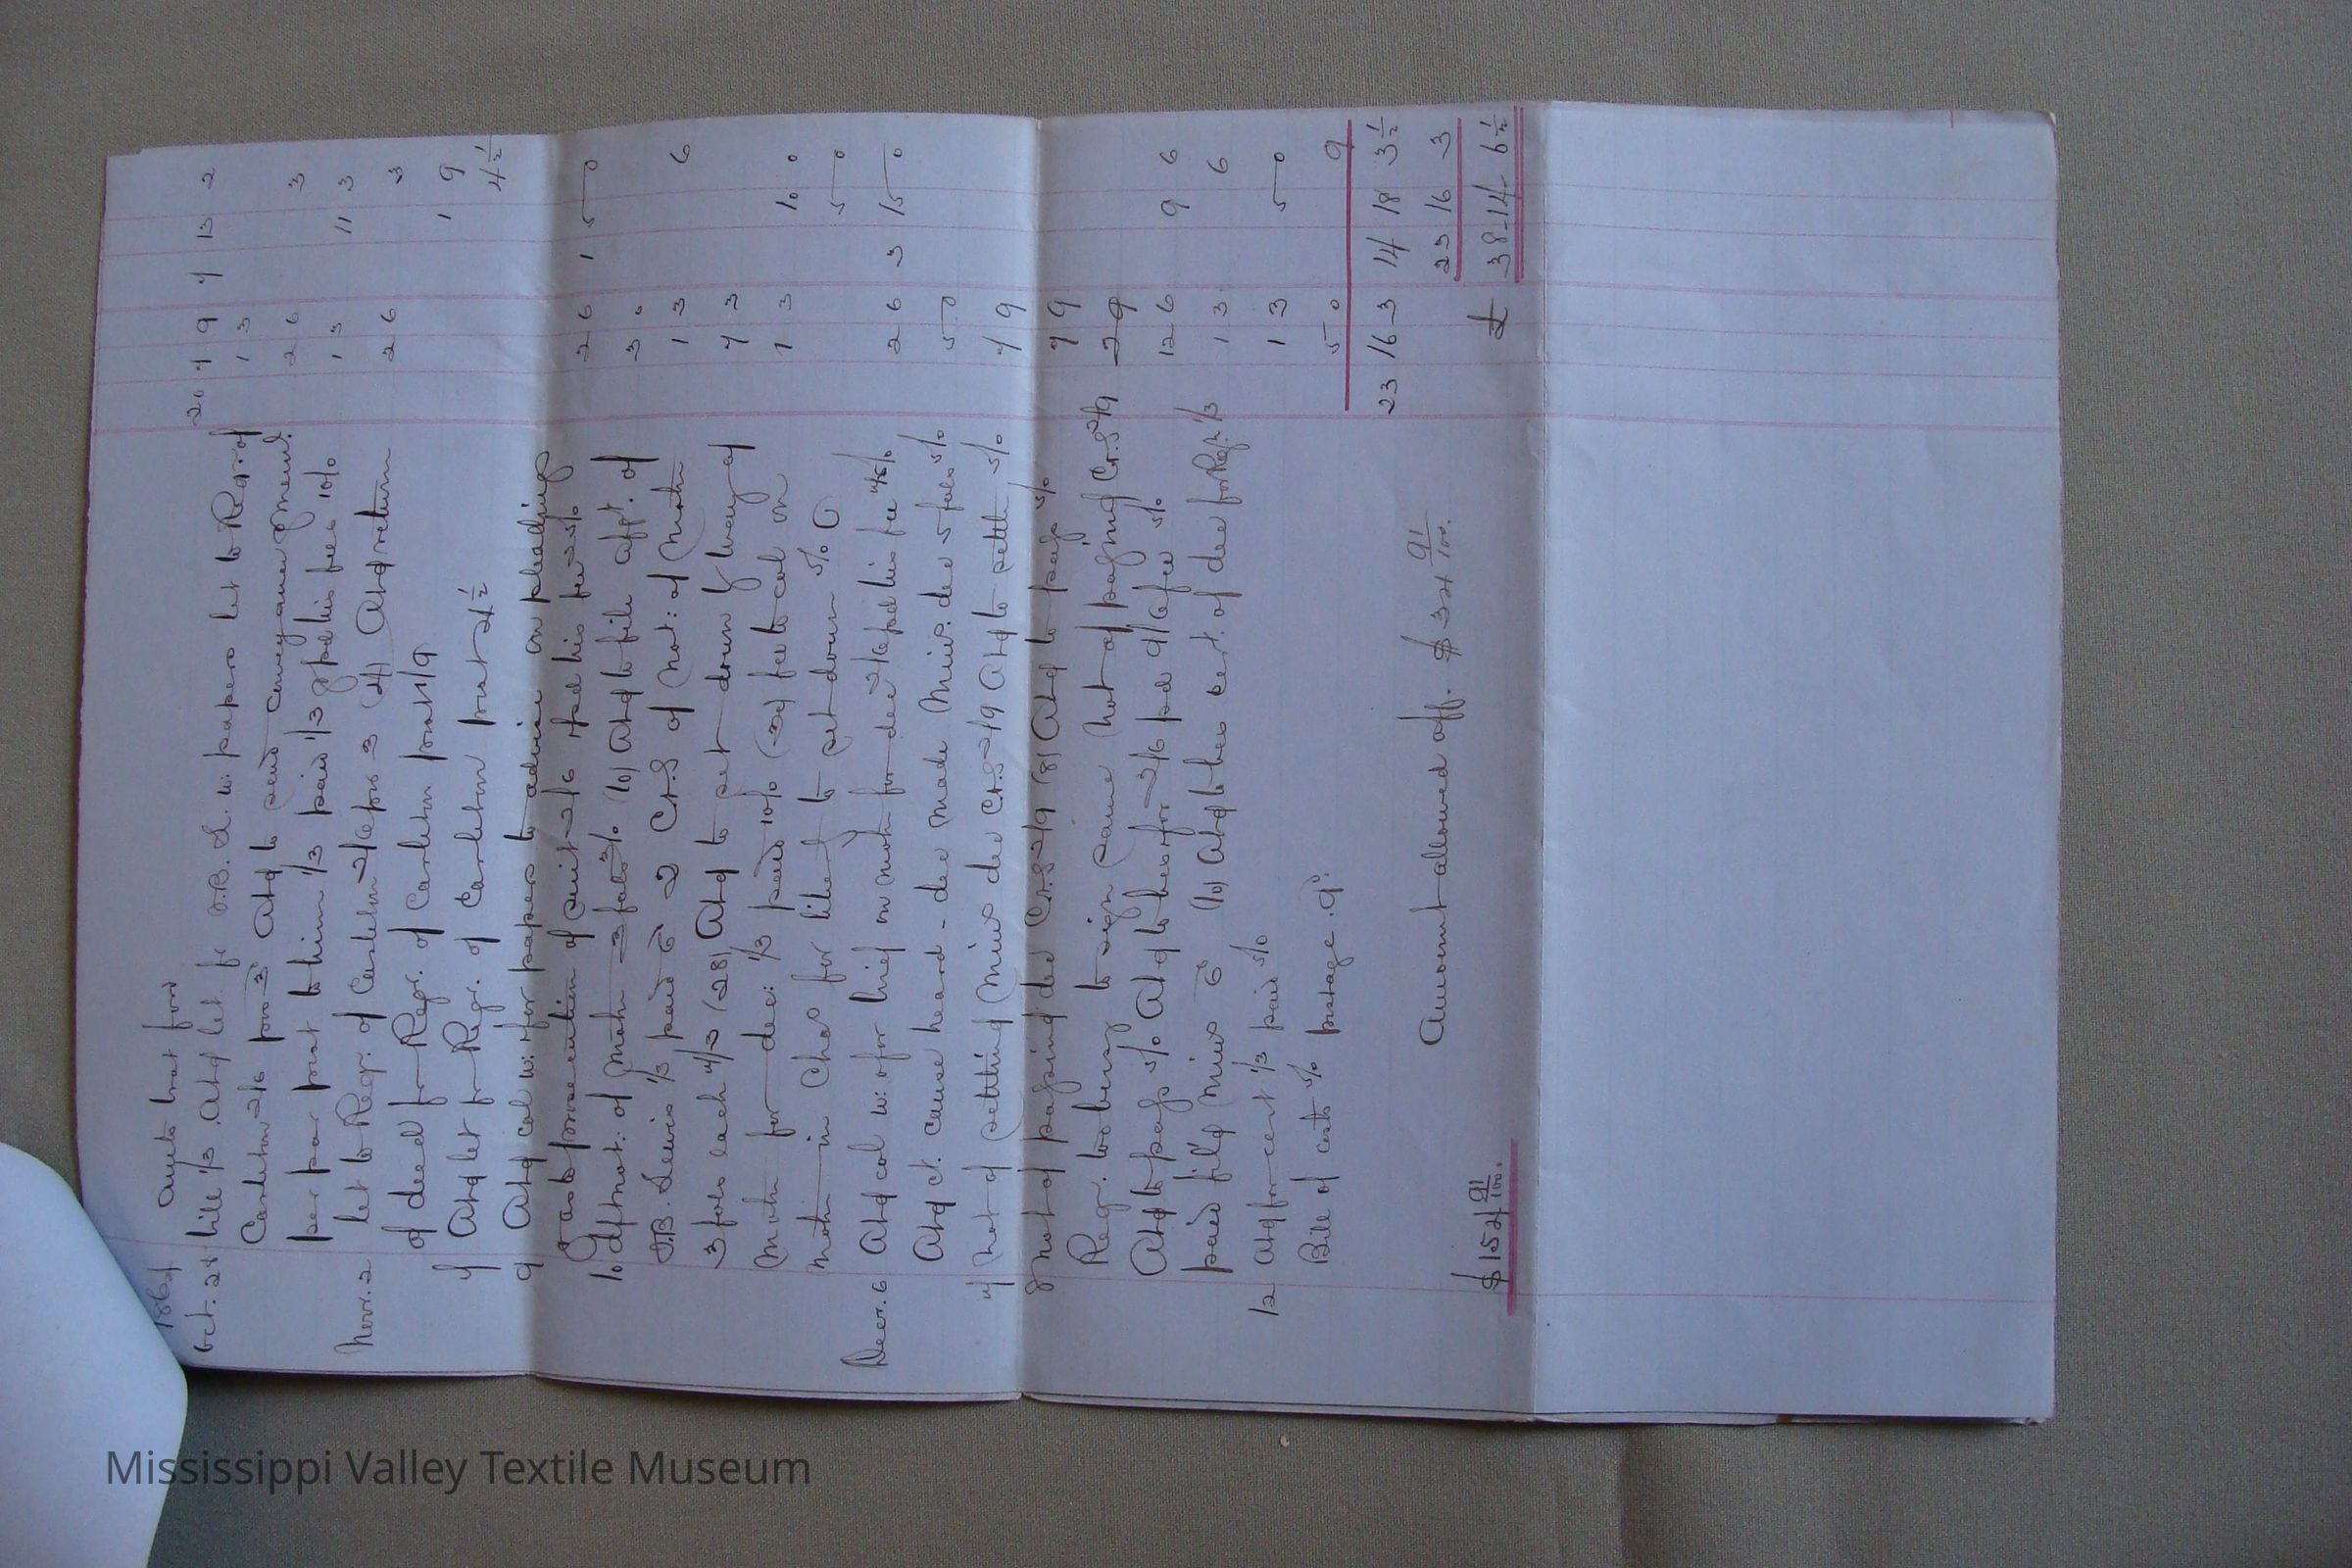 Amts brot ford 20 7 9 7 13 2
Oct. 28 bill 1/3 Attg let fr J.B. L. w: papers let to Regr of 1 3
Carleton 2/6 pos 3 Attg to send 2 6 3
per post to him 1/3 paid 1/3 & pd his fees 10/0 1 3 11 3
Novr. 2 let to Regr. of Carleton 2/6 pos 3 (4) Attg return 2 6 3
of deed fr Regr. of Carleton post 1/9 1 9
7 Attg let fr Regr. of Carleton post 4½ 4½
9 Attg col w: & for papers to advise on pleadings
& as to prosecution of suit 2/6 & pd his fee 5/0 2 6 1 5 0
10 dft not: of motn 3 fols 3/0 (10) Attg to file afft. of 3 0
J.B. Lewis 1/3 paid 6 2 Crs of not: of motn 1 3 6
3 fols each (28) Attg to set down by way of 7 3
motn for dec: 1/3 paid 10/0 fee to col on 1 3 10 0
motn in Chas for to set down 5/0 5 0
Decr. 6 Attg col w: & for brief on motn for dec 2/6 & pd his fee 2 6 3 15 0
Attg ct. cause heard - dec made Mins. dec 5 fols 5/0 5 0
7 Not of settling Mins dec Crs 2/9 Attg to settle 5/0 7 9
8 not of passing dec Crs 2/9 (8) Attg to pass 5/0 7 9
Regr. too busy to sign same Not of passing Crs 2/9 2 9
Attg to pass 5/0 Attg to bespr 2/6 pd 9/6 fee 5/0 12 6 9 6
paid filg Mins 6 (10) Attg to bes cert. of dec for Regr 1/3 1 3 6
12 Attg for cert 1/3 paid 5/0 1 3 5 0
Bill of costs 5/0 postage 9d. 5 0 9
23 16 3 14 18 3½
Amount allowed off. $ 91/100 23 16 3
$ 154 91/100. £ 38-14-6½
Mississippi Valley Textile Museum